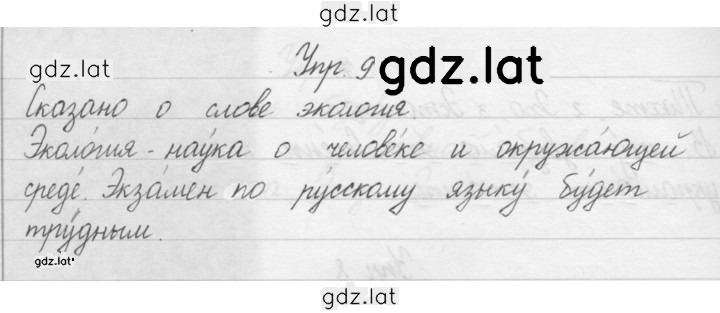 gdz.lat
Упр. 9
gdz.lat
gdz.lat
Сказано о слове экология.
Эколо́гия - нау́ка о челове́ке и окружа́ющей
среде́. Экза́мен по ру́сскому языку́ бу́дет
тру́дным.
gdz.lat
gdz.lat